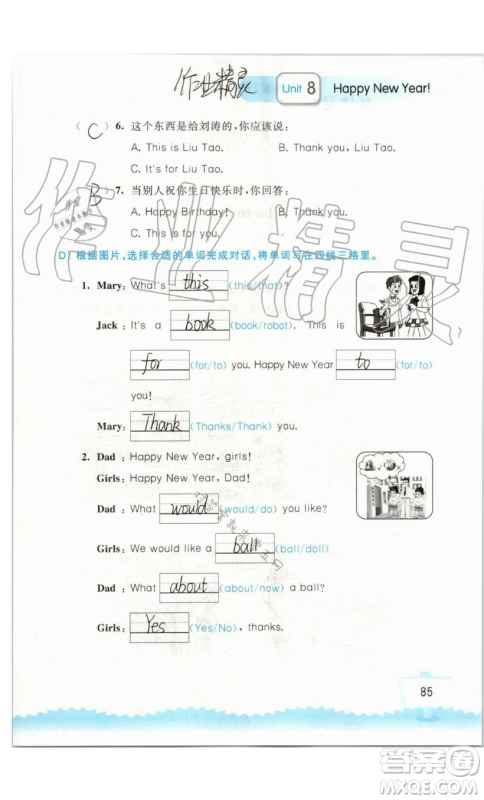 作业精灵 Unit 8 Happy New Year!
( C ) 6. 这个东西是给刘涛的,你应该说:
A. This is Liu Tao. B. Thank you, Liu Tao.
C. It's for Liu Tao.
( B ) 7. 当别人祝你生日快乐时,你回答:
A. Happy Birthday! B. Thank you.
C. This is for you.
D) 根据图片,选择合适的单词完成对话,将单词写在四线三格里。
1. Mary: What's this (this/that)?
Jack: It's a book (book/robot). This is
for (for/to) you. Happy New Year to (for/to)
you!
Mary: Thank (Thanks/Thank) you.
2. Dad: Happy New Year, girls!
Girls: Happy New Year, Dad!
Dad: What would (would/do) you like?
Girls: We would like a ball (ball/doll)
Dad: What about (about/now) a ball?
Girls: Yes (Yes/No), thanks.
85
作业精灵
答案圈
MXQE.COM